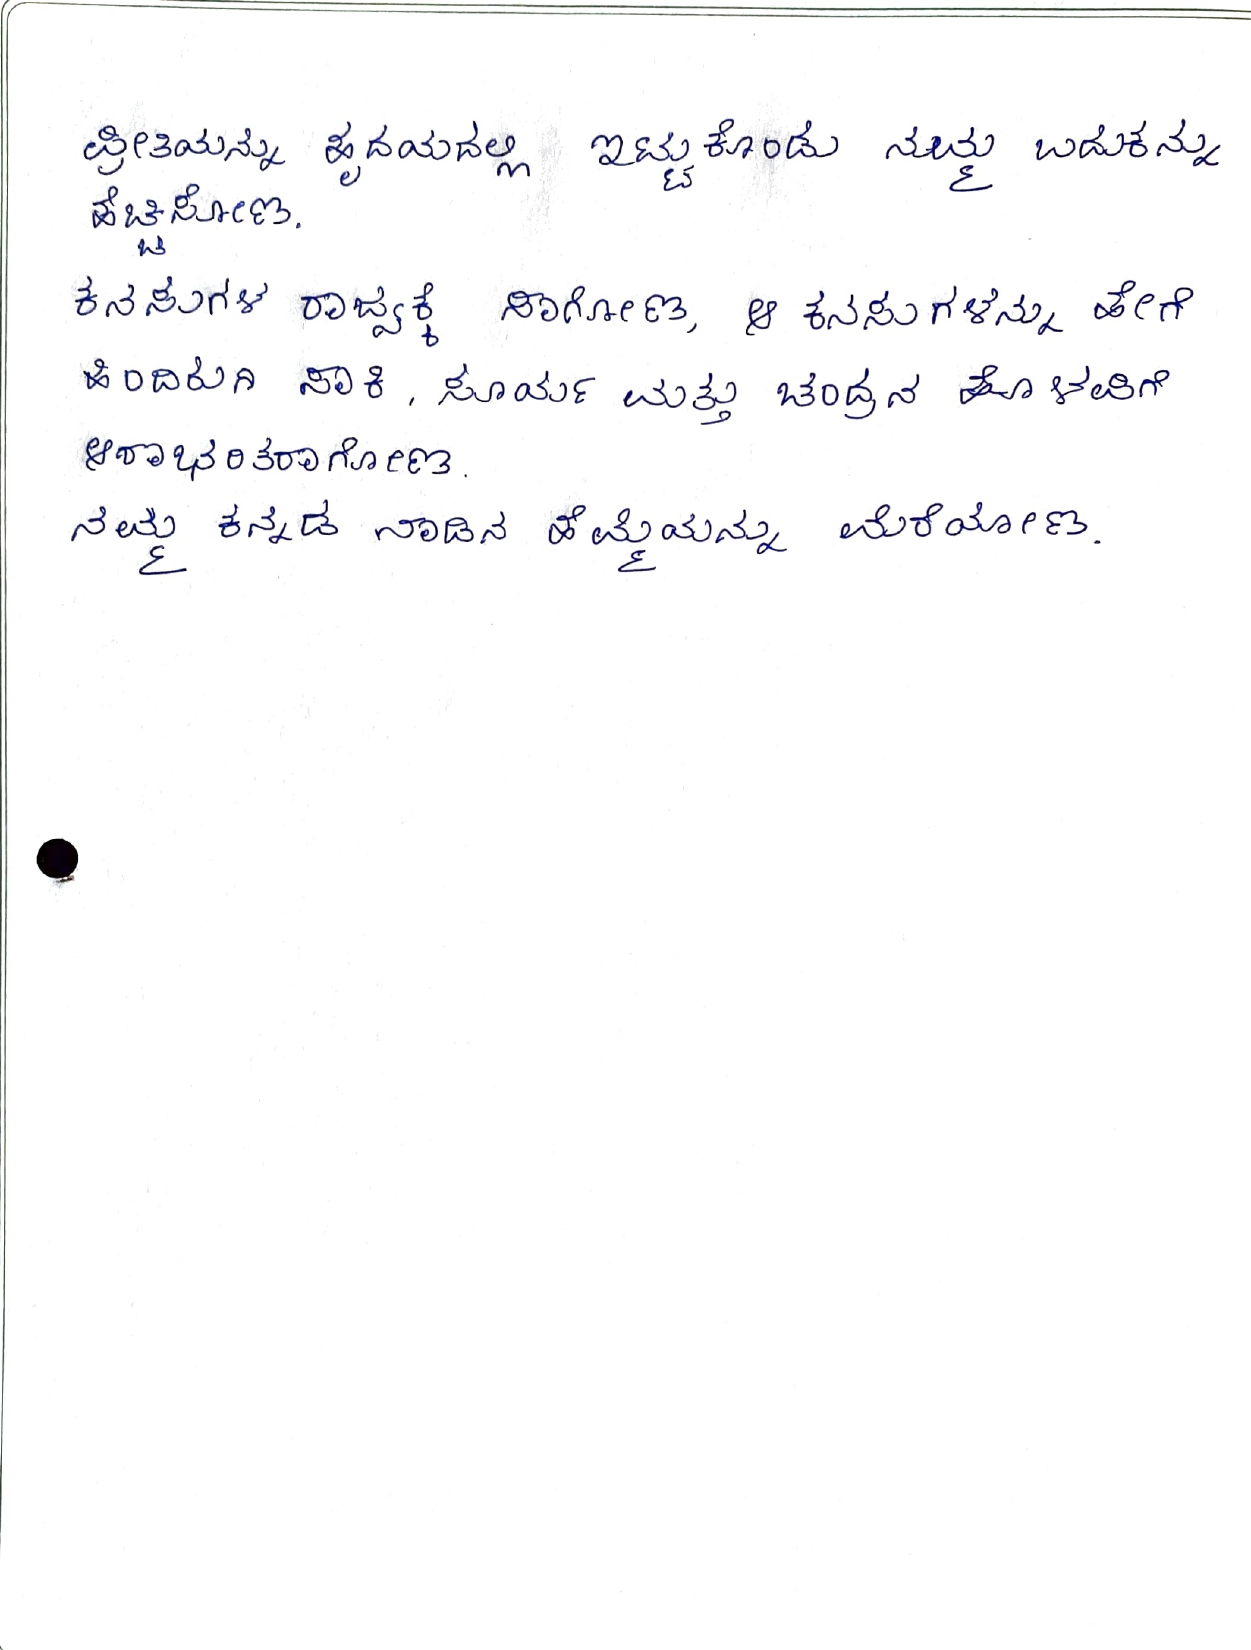 ಪ್ರೀತಿಯನ್ನು ಹೃದಯದಲ್ಲಿ ಇಟ್ಟುಕೊಂಡು ನಮ್ಮ ಬದುಕನ್ನು
ಹೆಚ್ಚಿಸೋಣ.
ಕನಸುಗಳ ರಾಜ್ಯಕ್ಕೆ ಸಾಗೋಣ, ಆ ಕನಸುಗಳನ್ನು ಹೇಗೆ
ಹಿಂದಿರುಗಿ ಸಾಕಿ, ಸೂರ್ಯ ಮತ್ತು ಚಂದ್ರನ ಹೊಳಪಿಗೆ
ಆಶಾಭರಿತರಾಗೋಣ.
ನಮ್ಮ ಕನ್ನಡ ನಾಡಿನ ಹೆಮ್ಮೆಯನ್ನು ಮೆರೆಯೋಣ.